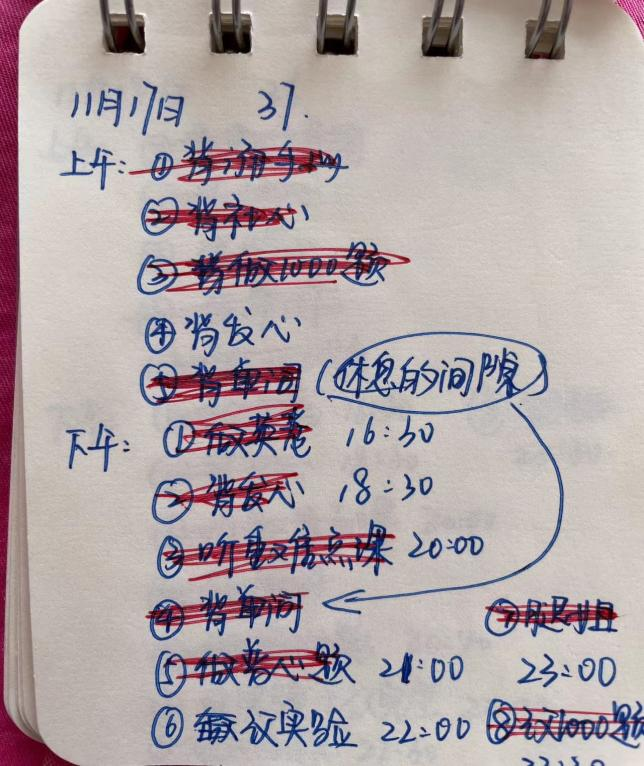 11月17日 37.
上午: ①背
②背社心
③背做1000题
④背发心
⑤背单词 (休息的间隙)
下午: ①做英卷 16:30
②背发心 18:30
③听重难点课 20:00
④背单词
⑤做普心题 21:00
⑥议实验 22:00
⑦ 23:00
⑧1000题